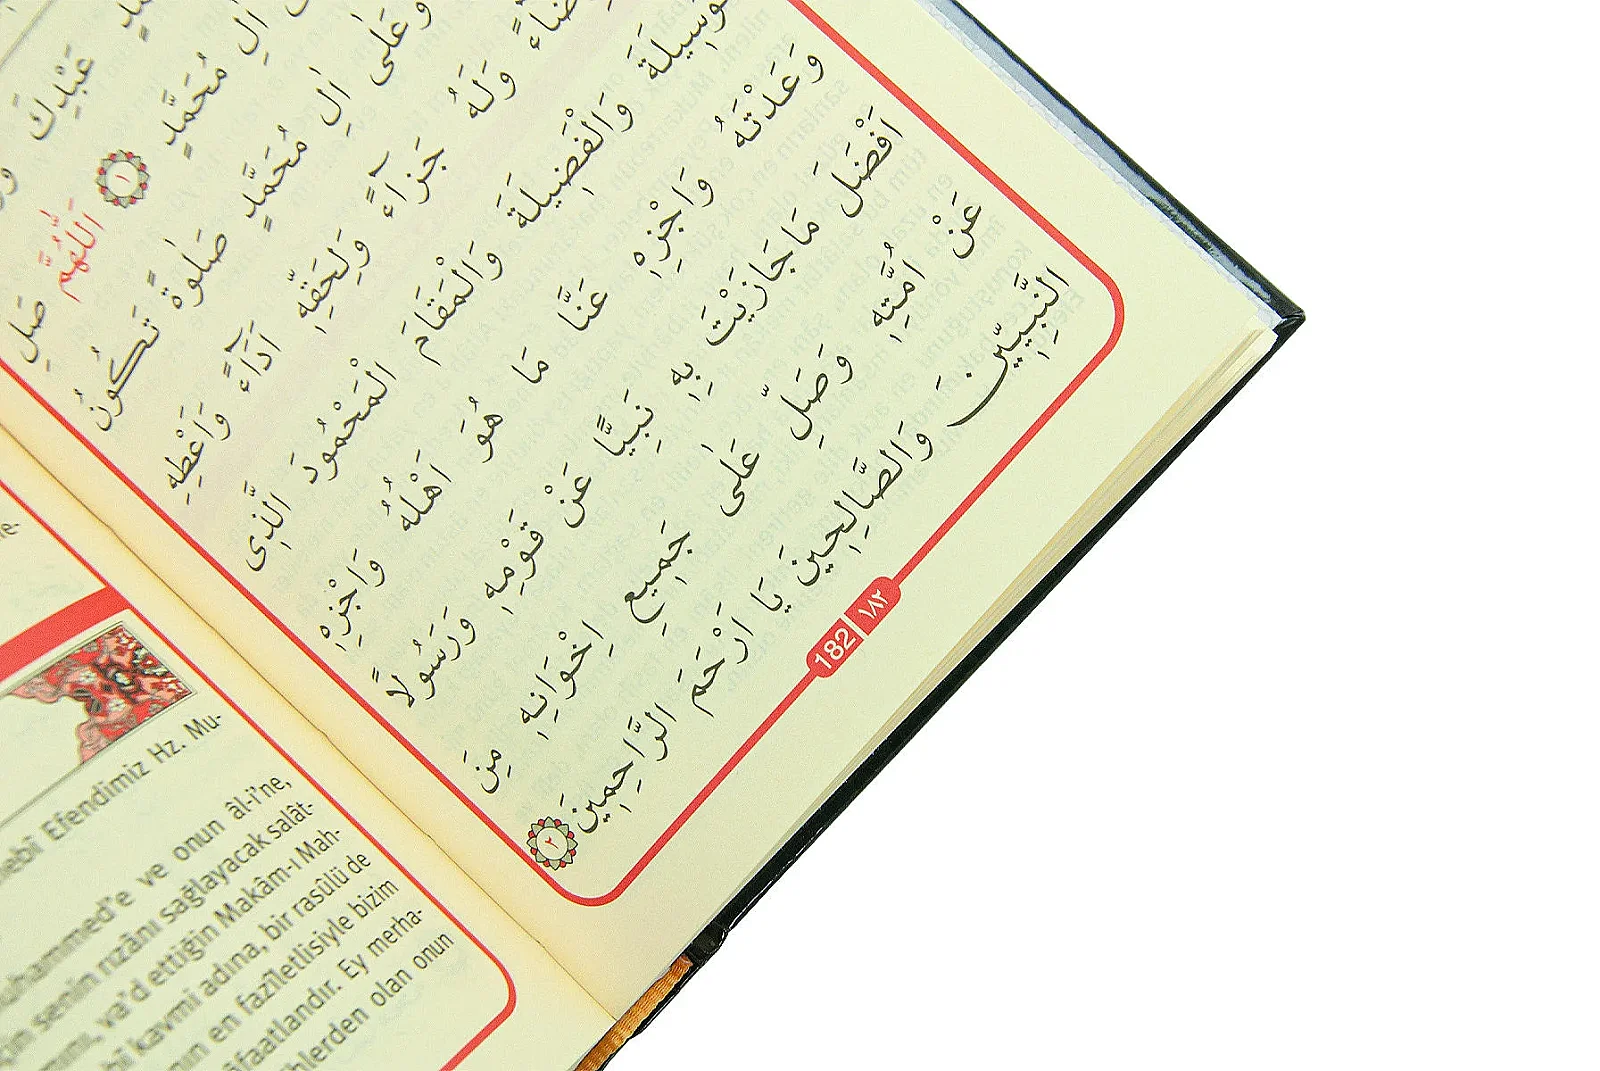 عَبْدِكَ
اٰلِ مُحَمَّدٍ ١ اَللّٰهُمَّ صَلِّ
وَعَلٰٓى اٰلِ مُحَمَّدٍ صَلٰوةً تَكُونُ
وَلَهُ جَزَٓاءً وَلِحَقِّهِ اَدَٓاءً وَاَعْطِهِ
وَالْفَضِيلَةَ وَالْمَقَامَ الْمَحْمُودَ الَّذِى
وَعَدْتَهُ وَاجْزِهِ عَنَّا مَا هُوَ اَهْلُهُ وَاجْزِهِ
اَفْضَلَ مَا جَازَيْتَ بِهِ نَبِيًّا عَنْ قَوْمِهِ وَرَسُولًا
عَنْ اُمَّتِهِ وَصَلِّ عَلٰى جَمِيعِ اِخْوَانِهِ مِنَ
النَّبِيِّينَ وَالصَّالِحِينَ يَا اَرْحَمَ الرَّاحِمِينَ ٢
182 ١٨٢
Nebî Efendimiz Hz. Mu-
hammed'e ve onun âl-i'ne,
için senin rızânı sağlayacak salât-
va'd ettiğin Makâm-ı Mah-
kavmi adına, bir rasûlü de
en fazîletlisiyle bizim
Ey merha-
olan onun